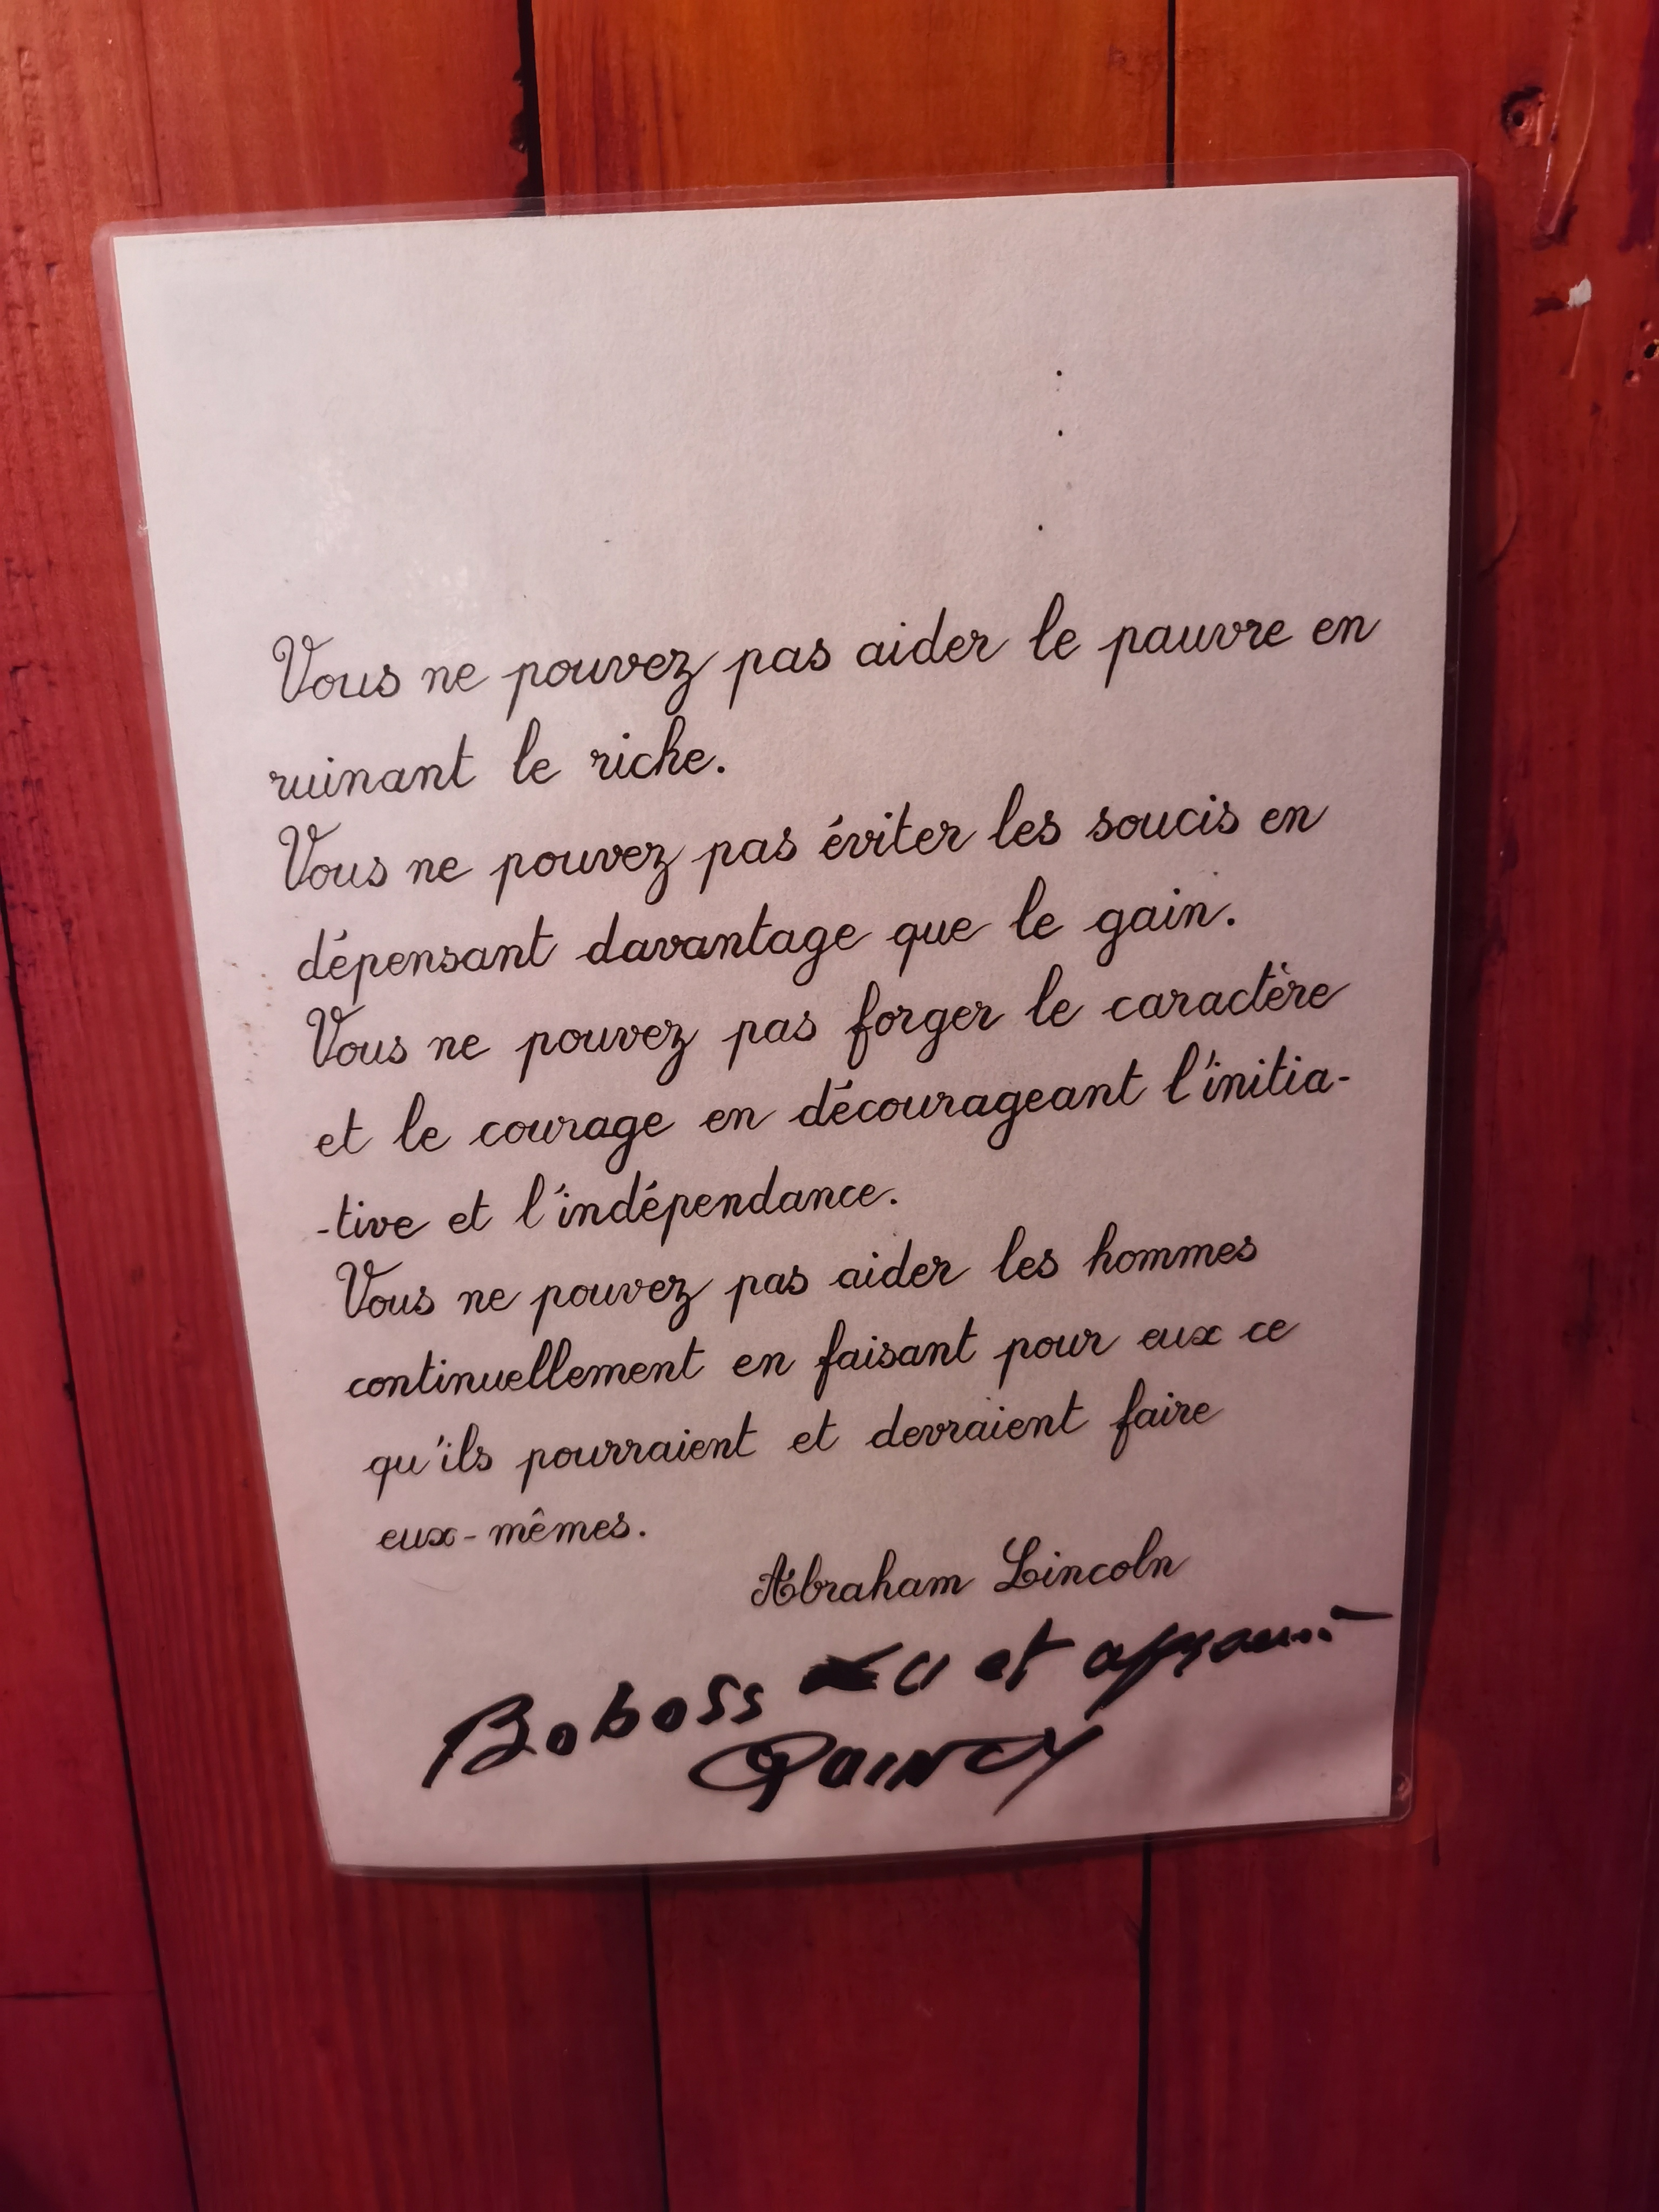 Vous ne pouvez pas aider le pauvre en
ruinant le riche.
Vous ne pouvez pas éviter les soucis en
dépensant davantage que le gain.
Vous ne pouvez pas forger le caractère
et le courage en décourageant l'initia-
-tive et l'indépendance.
Vous ne pouvez pas aider les hommes
continuellement en faisant pour eux ce
qu'ils pourraient et devraient faire
eux-mêmes.
Abraham Lincoln
Boboss et
QUINCY